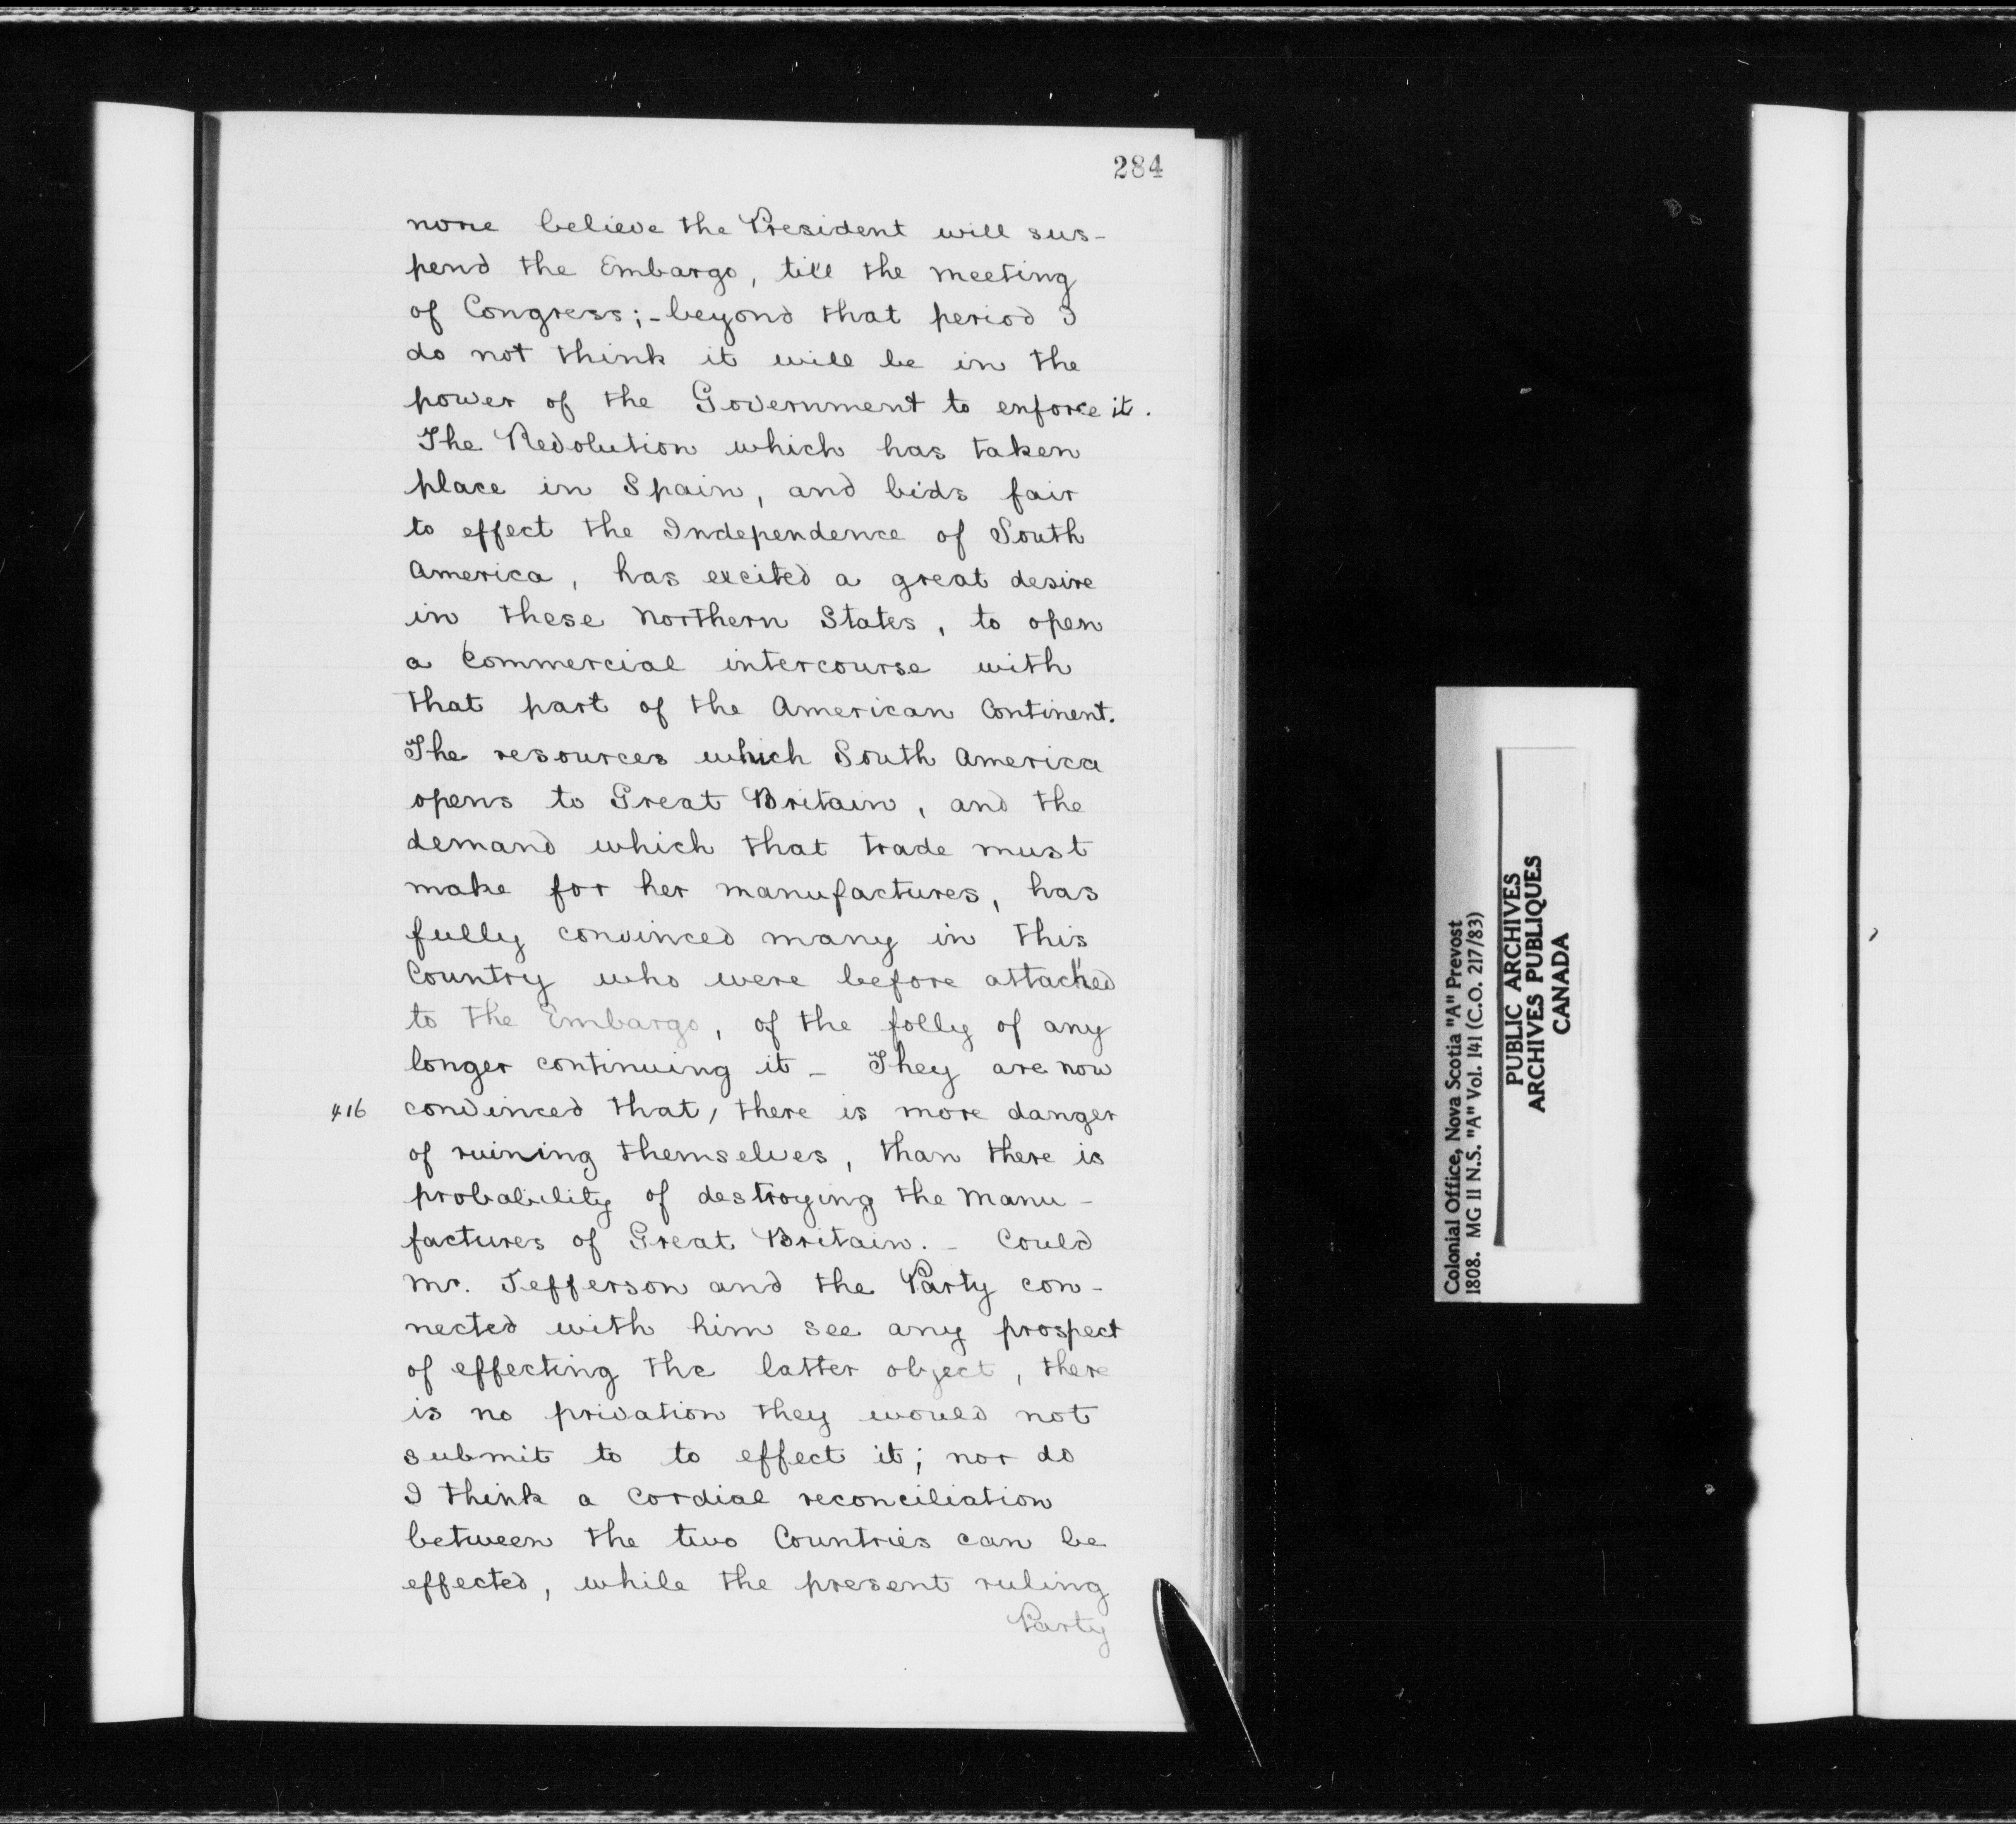 284
none believe the President will sus-
pend the Embargo, till the meeting
of Congress; - beyond that period I
do not think it will be in the
power of the Government to enforce it.
The Revolution which has taken
place in Spain, and bids fair
to effect the Independence of South
America, has excited a great desire
in these Northern States, to open
a Commercial intercourse with
that part of the American Continent.
The resources which South America
opens to Great Britain, and the
demand which that trade must
make for her manufactures, has
fully convinced many in this
Country who were before attached
to the Embargo, of the folly of any
longer continuing it - They are now
416 convinced that / there is more danger
of ruining themselves, than there is
probability of destroying the Manu-
factures of Great Britain. - Could
Mr. Jefferson and the Party con-
nected with him see any prospect
of effecting the latter object, there
is no privation they would not
submit to to effect it; nor do
I think a Cordial reconciliation
between the two Countries can be
effected, while the present ruling
Party
Colonial Office, Nova Scotia "A" Prevost
1808. MG 11 N.S. "A" Vol. 141 (C.O. 217/83)
PUBLIC ARCHIVES
ARCHIVES PUBLIQUES
CANADA